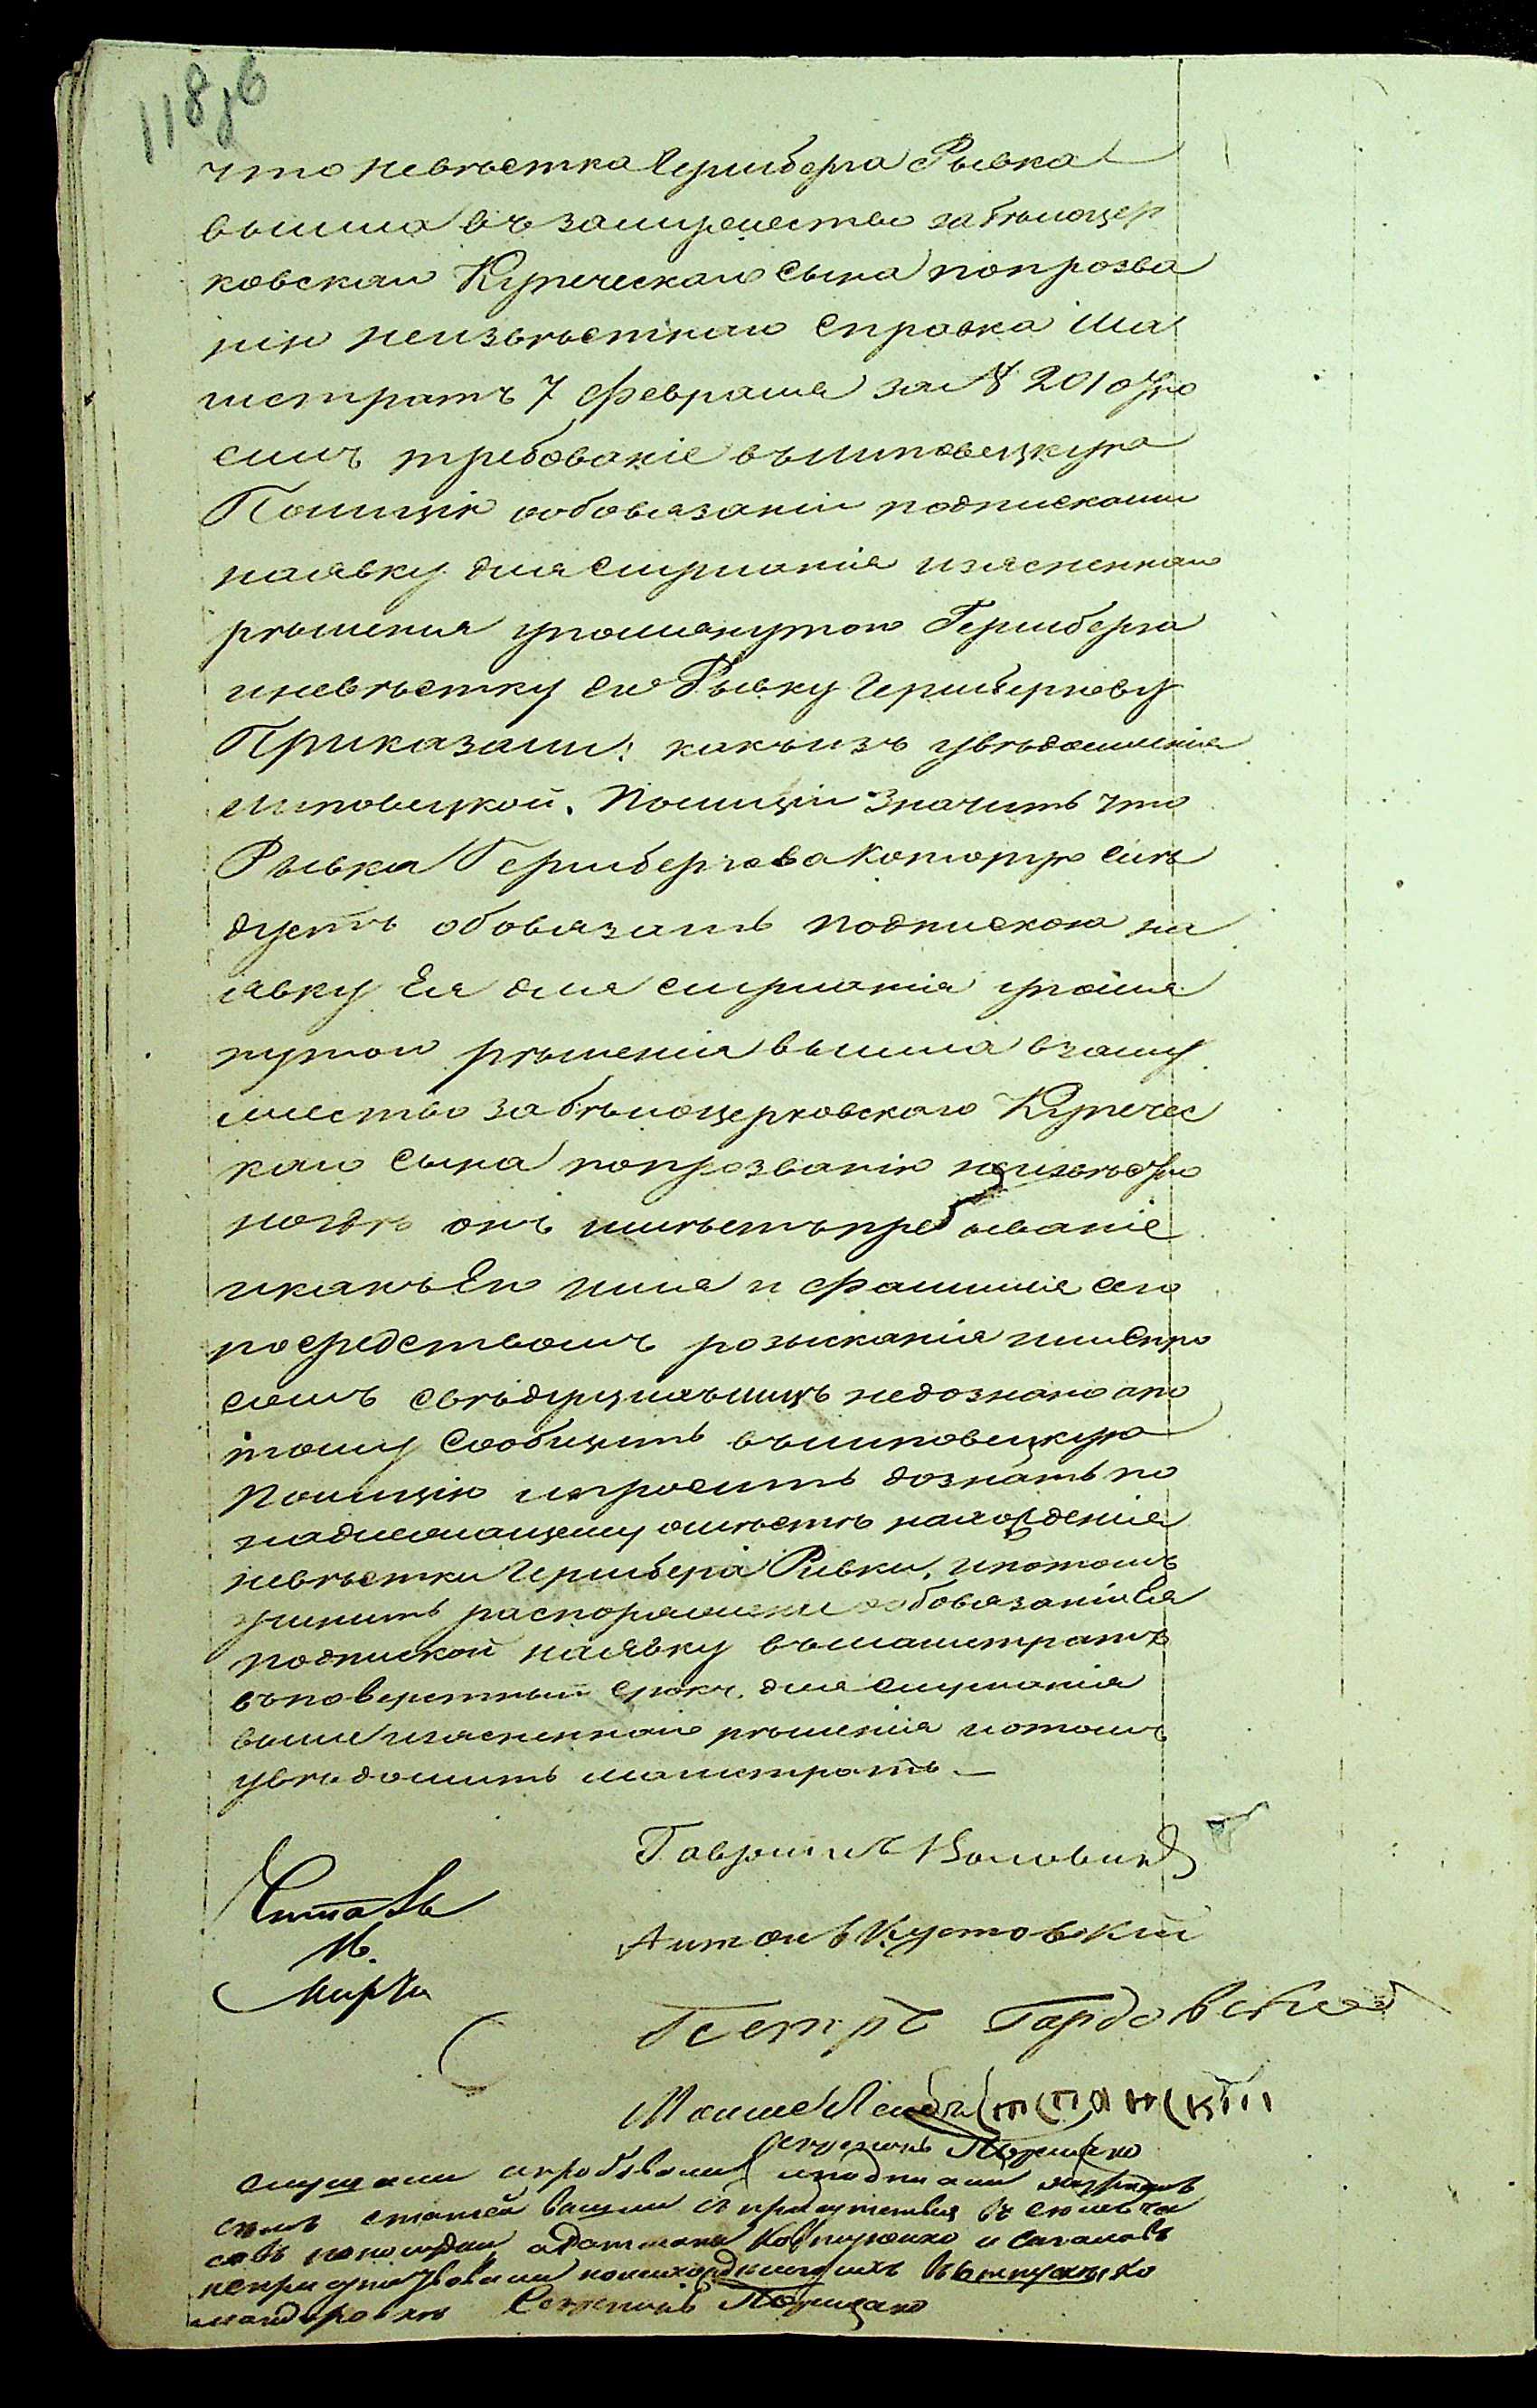 118 об
что невѣстка Германберга Рывка
вышла въ замужество за бѣлоцер
ковскаго Купеческаго сына попрозва
нію неизвѣстнаго справка Ма
гистратъ 7 февраля за № 201 отно
силъ требованіе вълиповецкую
Полицію ообовязаніи подписками
наявку для слушанія изясненнаго
рѣшенія упомянутого Гермберга
иневѣстку его Рывку Гермбергову
Приказали: какъизъ увѣдомленія
липовецкой Полиціи значить что
Рывка Гермбергова Которую слѣ
дуетъ обовязать подпискою на
явку Ея для слушанія упомя
нутого рѣшенія вышла взаму
жество забѣлоцерковскаго Купечес
каго сына попрозванію неизвѣстно
ногдѣ онъ имѣетъпребываніе
икакъЕго имя и фамилія сего
посредствомъ розысканія или спро
сомъ недознано апо
тому Сообщить вълиповецкую
Полицію ипросить дознать по
надлежащему омѣстѣ нахожденія
невѣстки Гермберга Ривки, ипотомъ
учинить распоряжение ообовязаніиЕя
подпиской наявку вмагистратъ
въповерстный срокъ для слушанія
вышеизясненнаго рѣшенія иотомъ
увѣдомить магистратъ.—
Гавриилъ
Читалъ
Антонъ Кустовскій
Петръ Гордовскій
Мошко
Секретарь
слушали ипробовали иподписали
статей вошли съ присутствія въ
и
неприсутствовали
Секретарь